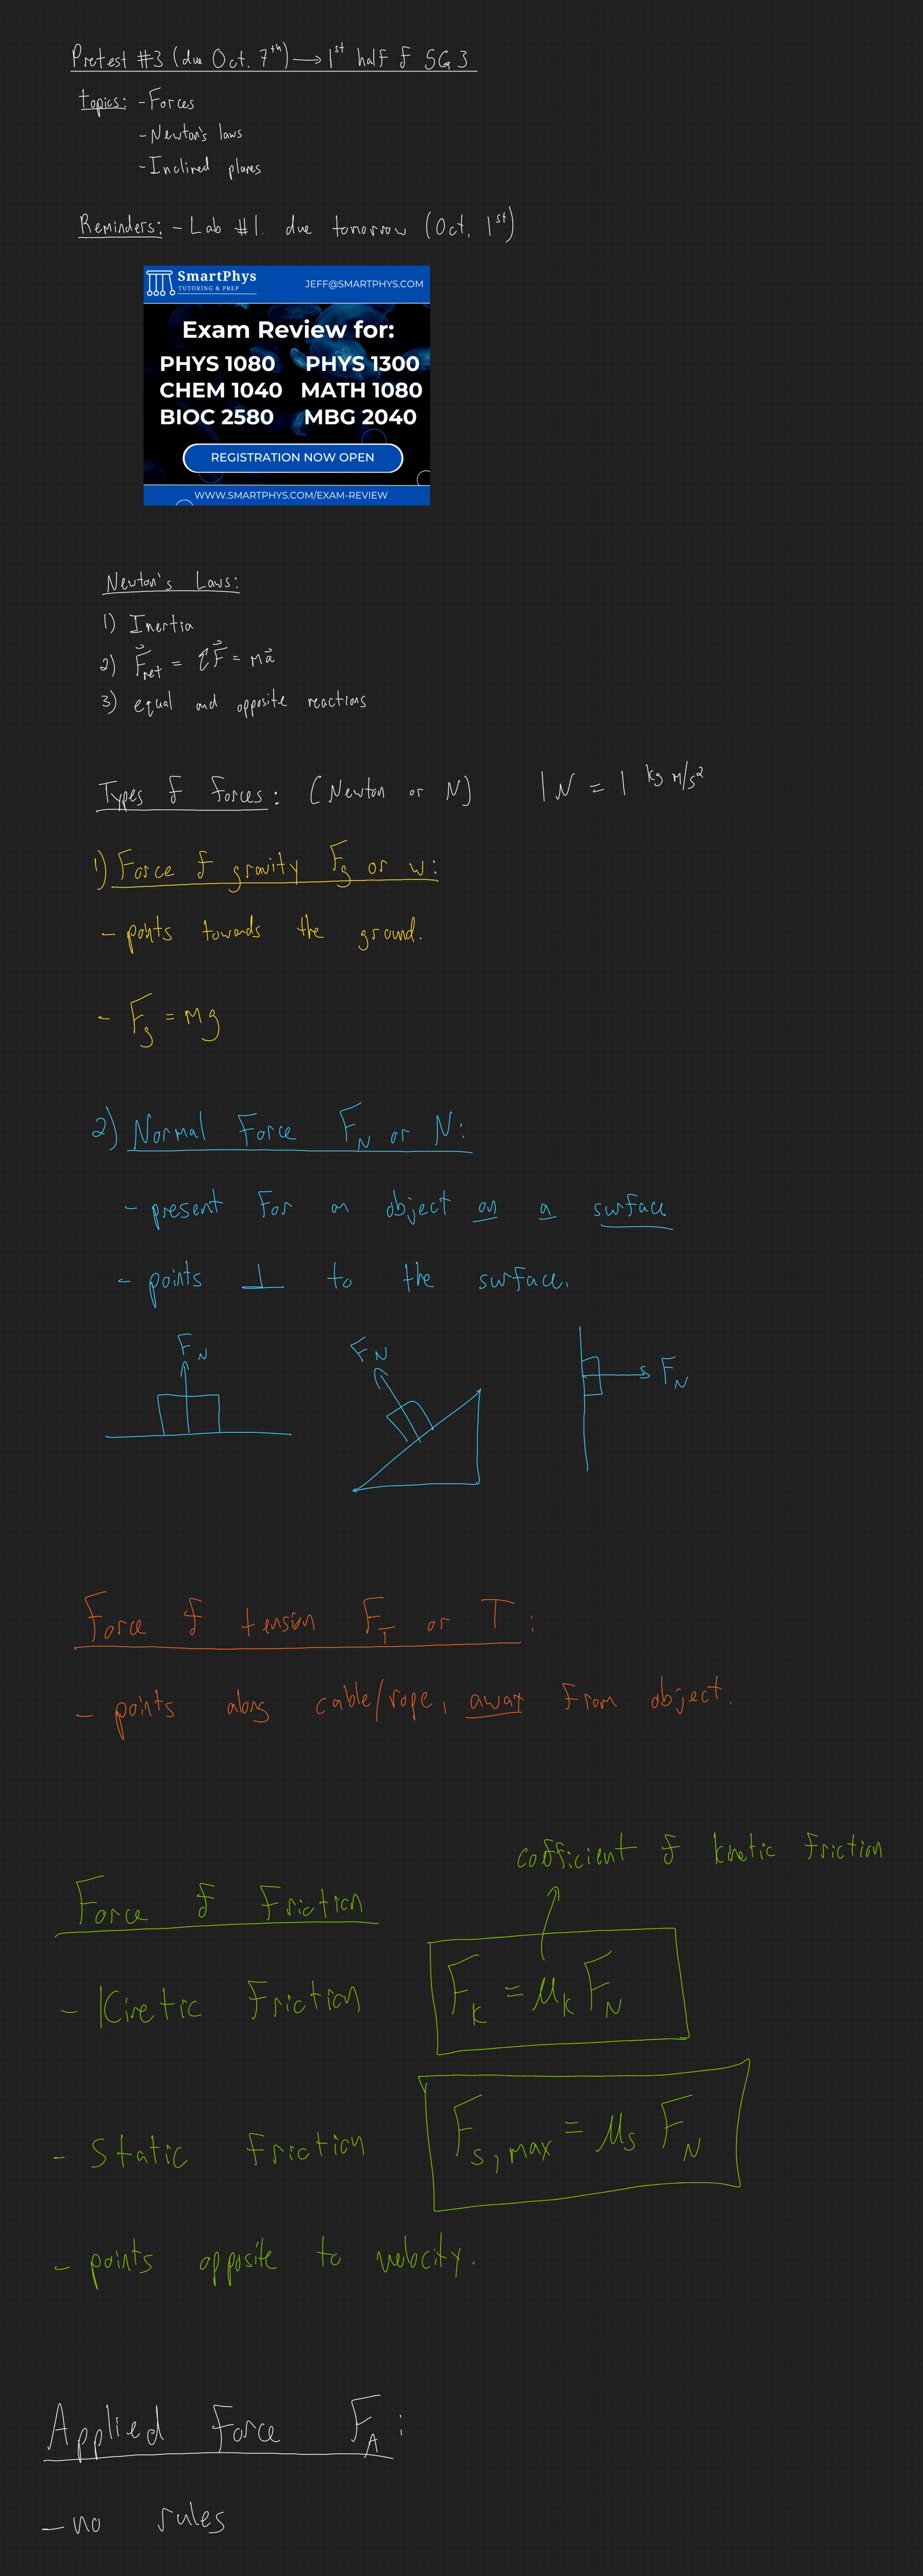 Pretest #3 (due Oct. 7th) → 1st half of SG3
topics: - Forces
- Newton's laws
- Inclined planes
Reminders: - Lab #1. due tomorrow (Oct. 1st)
SmartPhys
TUTORING & PREP
JEFF@SMARTPHYS.COM
Exam Review for:
PHYS 1080 PHYS 1300
CHEM 1040 MATH 1080
BIOC 2580 MBG 2040
REGISTRATION NOW OPEN
WWW.SMARTPHYS.COM/EXAM-REVIEW
Newton's Laws:
1) Inertia
2) F⃗net = ΣF⃗ = ma⃗
3) equal and opposite reactions
Types of Forces: (Newton or N) 1 N = 1 kg m/s²
1) Force of gravity Fg or w:
- points towards the ground.
- Fg = mg
2) Normal Force FN or N:
- present for an object on a surface
- points ⊥ to the surface.
FN FN FN
Force of tension FT or T:
- points along cable/rope, away from object.
coefficient of kinetic friction
Force of Friction
- Kinetic Friction Fk = μk FN
- Static Friction Fs,max = μs FN
- points opposite to velocity.
Applied Force FA:
- no rules